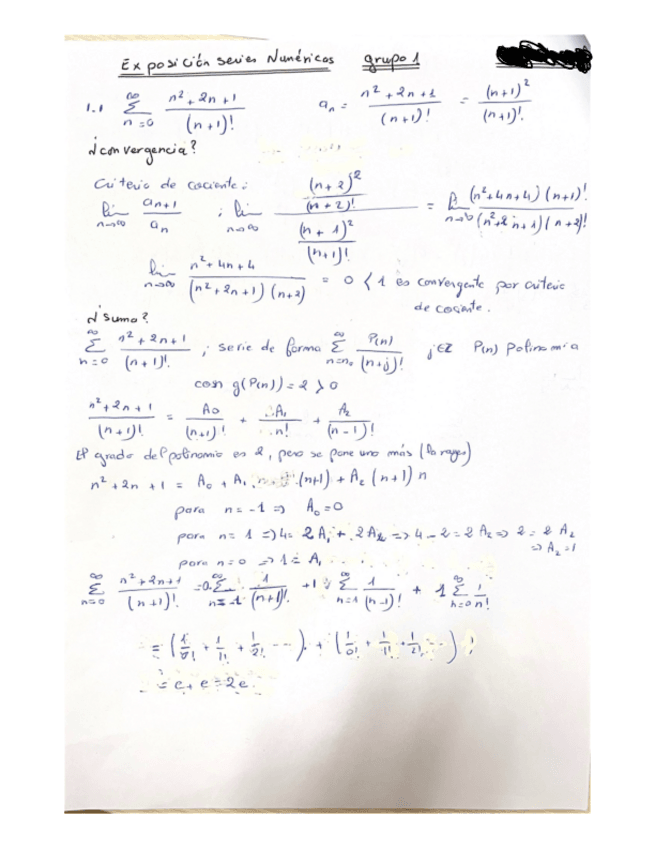 Exposición series Numéricas grupo 1
1.1 ∑_{n=0}^{∞} (n²+2n+1)/(n+1)!   a_n = (n²+2n+1)/(n+1)! = (n+1)²/(n+1)!
¿convergencia?
Criterio de cociente:
lim_{n→∞} a_{n+1}/a_n ; lim_{n→∞} ((n+2)²/(n+2)!)/((n+1)²/(n+1)!) = lim_{n→∞} (n²+4n+4)(n+1)!/(n²+2n+1)(n+2)!
lim_{n→∞} (n²+4n+4)/((n²+2n+1)(n+2)) = 0 < 1 es convergente por criterio
de cociente.
¿suma?
∑_{n=0}^{∞} (n²+2n+1)/(n+1)! ; serie de forma ∑_{n=n₀}^{∞} P(n)/(n+j)!   j∈Z   P(n) Polinomio
con g(P(n)) = 2 > 0
(n²+2n+1)/(n+1)! = A₀/(n+1)! + A₁/n! + A₂/(n-1)!
El grado del polinomio es 2, pero se pone uno más
n²+2n+1 = A₀ + A₁ (n+1) + A₂ (n+1) n
para n=-1 => A₀=0
para n=1 => 4= 2A₁ + 2A₂ => 4-2=2A₂ => 2=2A₂
=> A₂=1
para n=0 => 1 = A₁
∑_{n=0}^{∞} (n²+2n+1)/(n+1)! = 0·∑_{n=-1}^{∞} 1/(n+1)! + 1 ∑_{n=1}^{∞} 1/(n-1)! + 1 ∑_{n=0}^{∞} 1/n!
= (1/0! + 1/1! + 1/2! ...) + (1/0! + 1/1! + 1/2! ...)
= e + e = 2e